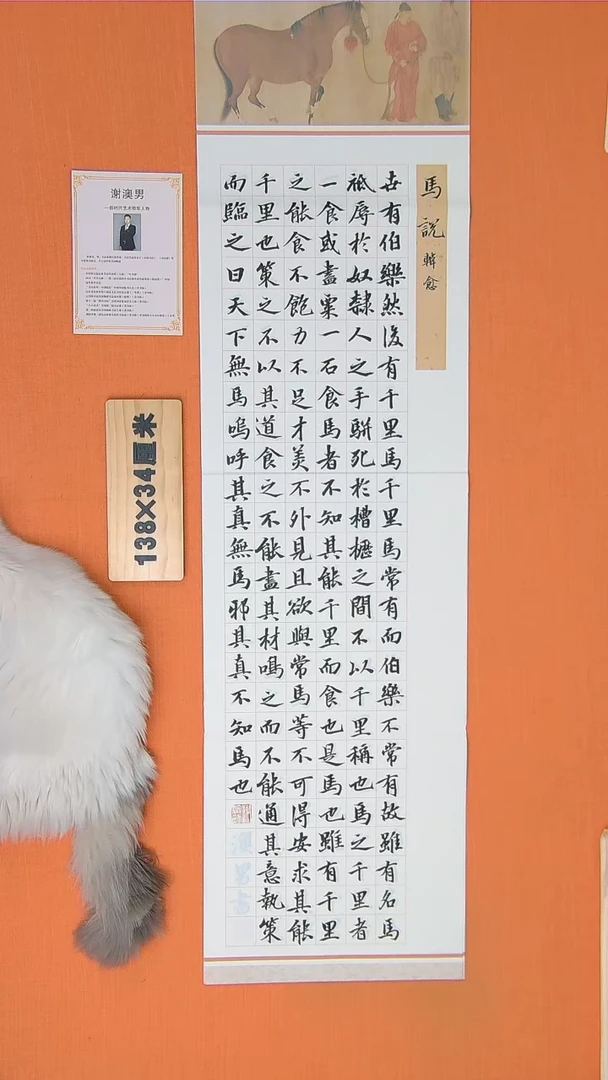 馬說 韓愈
世有伯樂然後有千里馬千里馬常有而伯樂不常有故雖有名馬
祗辱於奴隸人之手駢死於槽櫪之間不以千里稱也馬之千里者
一食或盡粟一石食馬者不知其能千里而食也是馬也雖有千里
之能食不飽力不足才美不外見且欲與常馬等不可得安求其能
千里也策之不以其道食之不能盡其材鳴之而不能通其意執策
而臨之曰天下無馬嗚呼其真無馬邪其真不知馬也
澳男書
谢澳男
138×34厘米